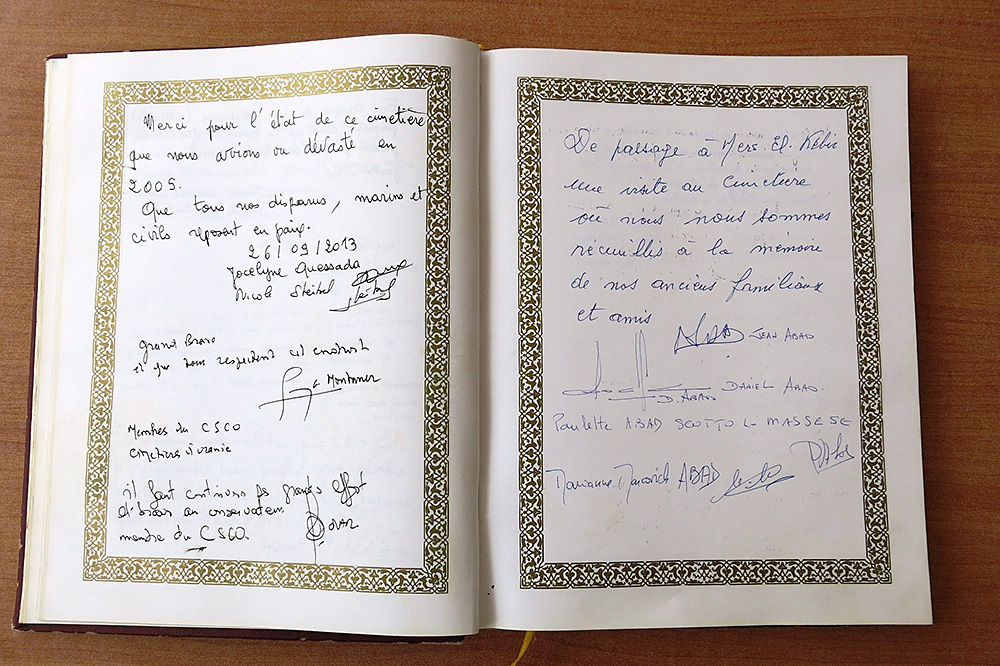 Merci pour l'état de ce cimetière
que nous avions vu dévasté en
2005.
Que tous nos disparus, marins et
civils reposent en paix.
26/09/2013
Jocelyne Quessada
Nicole
Grand Bravo
et que tous respectent cet endroit
Montaner
Membres du CSCO
Cimetières
il faut continuer grands effort
conservateur.
membre du CSCO.
De passage à Mers El Kébir
une visite au cimetière
où nous nous sommes
récueillis à la mémoire
de nos anciens familiaux
et amis
ABAD JEAN ABAD
DANIEL ABAD.
D. ABAD
Paulette ABAD SCOTTO L MASSESE
Marianne ABAD